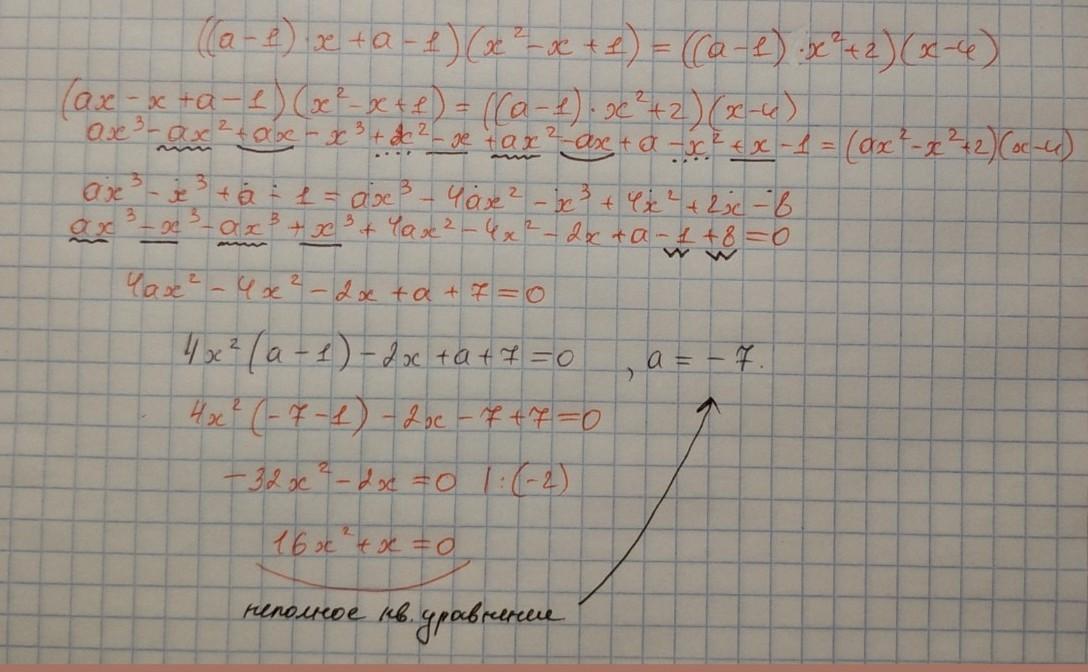 ((a-1)·x+a-1)(x²-x+1)=((a-1)·x²+2)(x-4)
(ax-x+a-1)(x²-x+1)=((a-1)·x²+2)(x-4)
ax³-ax²+ax-x³+x²-x+ax²-ax+a-x²+x-1=(ax²-x²+2)(x-4)
ax³-x³+a-1=ax³-4ax²-x³+4x²+2x-8
ax³-x³-ax³+x³+4ax²-4x²-2x+a-1+8=0
4ax²-4x²-2x+a+7=0
4x²(a-1)-2x+a+7=0 , a=-7.
4x²(-7-1)-2x-7+7=0
-32x²-2x=0 |:(-2)
16x²+x=0
неполное кв. уравнение